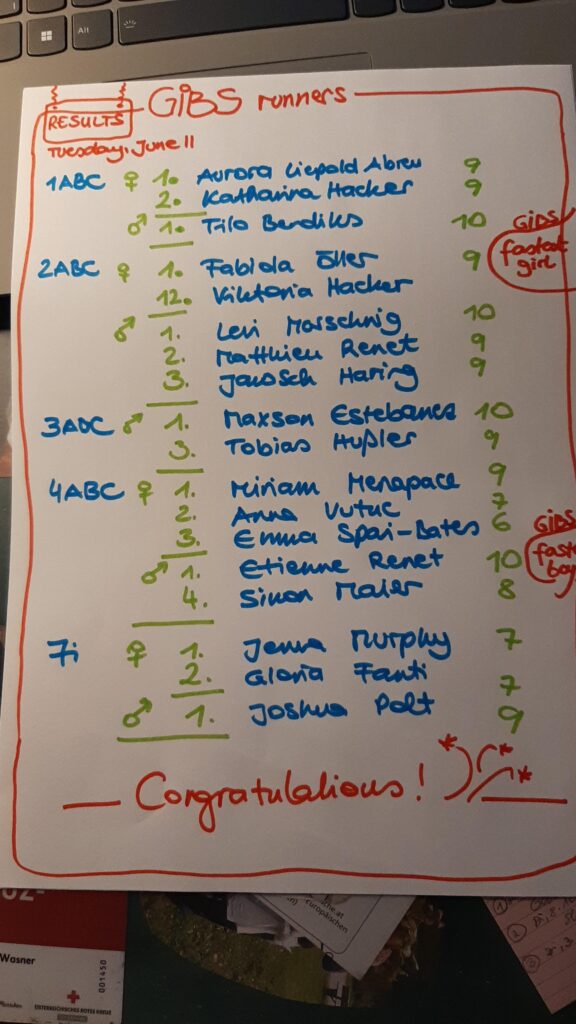 Alt
GIBS runners
RESULTS
Tuesday, June 11
1ABC ♀ 1. Aurora Liepold Abreu 9
2. Katharina Hacker 9
♂ 1. Tilo Berdiks 10
2ABC ♀ 1. Fabiola Öller 9 GIBS fastest girl
12. Viktoria Hacker
♂ 1. Levi Marschnig 10
2. Matthieu Renet 9
3. Janosch Haring 9
3ABC ♂ 1. Maxson Estebanez 10
3. Tobias Hußler 9
4ABC ♀ 1. Miriam Menapace 9
2. Anna Vutuc 7
3. Emma Spari-Bates 6
♂ 1. Etienne Renet 10 GIBS
4. Simon Maier 8
7i ♀ 1. Jenna Murphy 7
2. Gloria Fanti 7
♂ 1. Joshua Polt 9
Congratulations!
Wasner
001450
ÖSTERREICHISCHES ROTES KREUZ
europäischen